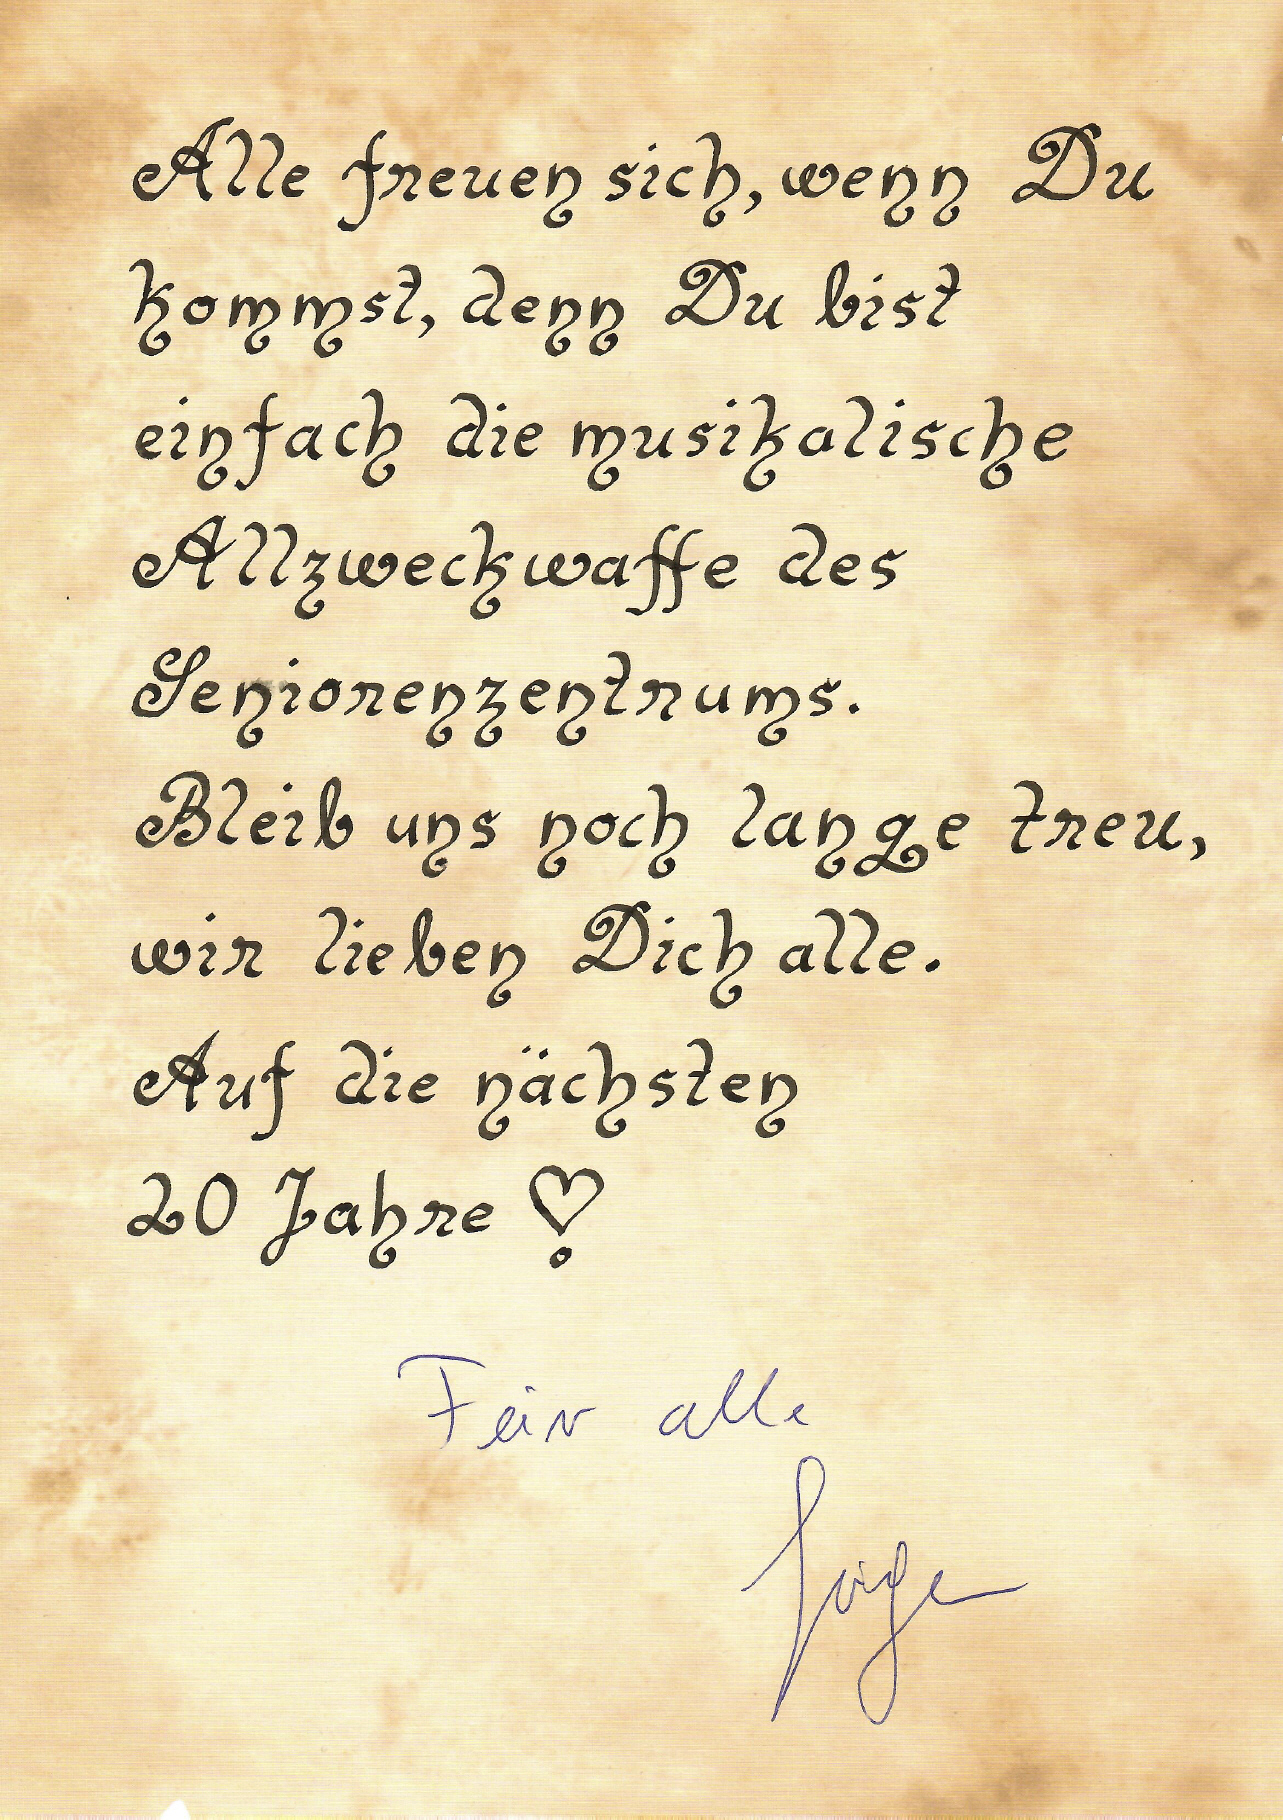 Alle freuen sich, wenn Du
kommst, denn Du bist
einfach die musikalische
Allzweckwaffe des
Seniorenzentrums.
Bleib uns noch lange treu,
wir lieben Dich alle.
Auf die nächsten
20 Jahre ♡
alle